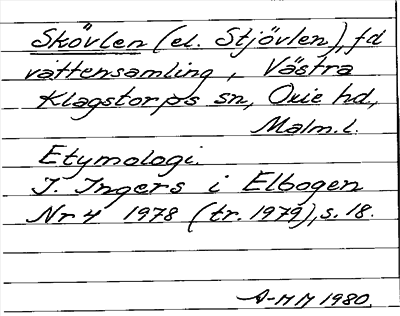 Skövlen (el. Stjövlen), fd
vattensamling, Västra
Klagstorps sn, Oxie hd,
Malm. l.
Etymologi.
I. Ingers i Elbogen
Nr 4 1978 (tr. 1979), s. 18.
A-M M 1980.